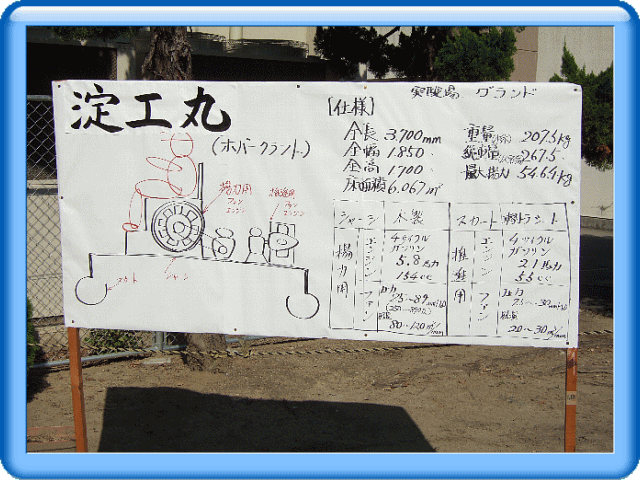 淀工丸
(ホバークラフト)
実験場 グランド
[仕様]
全長 3,700mm
全幅 1,850
全高 1,700
床面積 6.067㎡
重量 207.5kg
総重量 267.5
最大揚力 546.4kg
揚力用
ファン
エンジン
推進用
ファン
エンジン
スカート
シャーシ
シャーシ 木製
揚力用
エンジン
4サイクル
ガソリン
5.8馬力
154cc
ファン
風圧
80~120㎥/min
スカート
推進用
エンジン
4サイクル
ガソリン
2.1馬力
55cc
ファン
20~30㎥/min